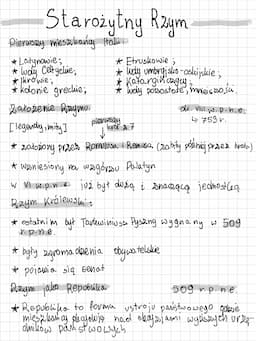 Starożytny Rzym
Pierwszy mieszkańcy Italii
* Latynowie; * Etruskowie;
* ludy Celtyckie; * ludy umbryjsko-oskijskie;
* Ilirowie; * Kartagińczycy;
* kolonie greckie; * ludy pozostałe, mniejsze.
Założenie Rzymu
753 r.
[legendy, mity] pierwszy król z 7
* założony przez Romulusa i Remusa (zabity później przez brata)
* wzniesiony na wzgórzu Palatyn
w VI w p.n.e. już był dużą i znaczącą jednostką
Rzym Królewski:
* ostatnim był Tarkwiniusz Pyszny wygnany w 509
r p.n.e.
* były zgromadzenia obywatelskie
* pojawia się senat
Rzym jako Republika 509 r p.n.e.
* Republika to forma ustroju państwowego gdzie
mieszkańcy głosują nad obsadzaniem wyższych urzę-
dników państwowych